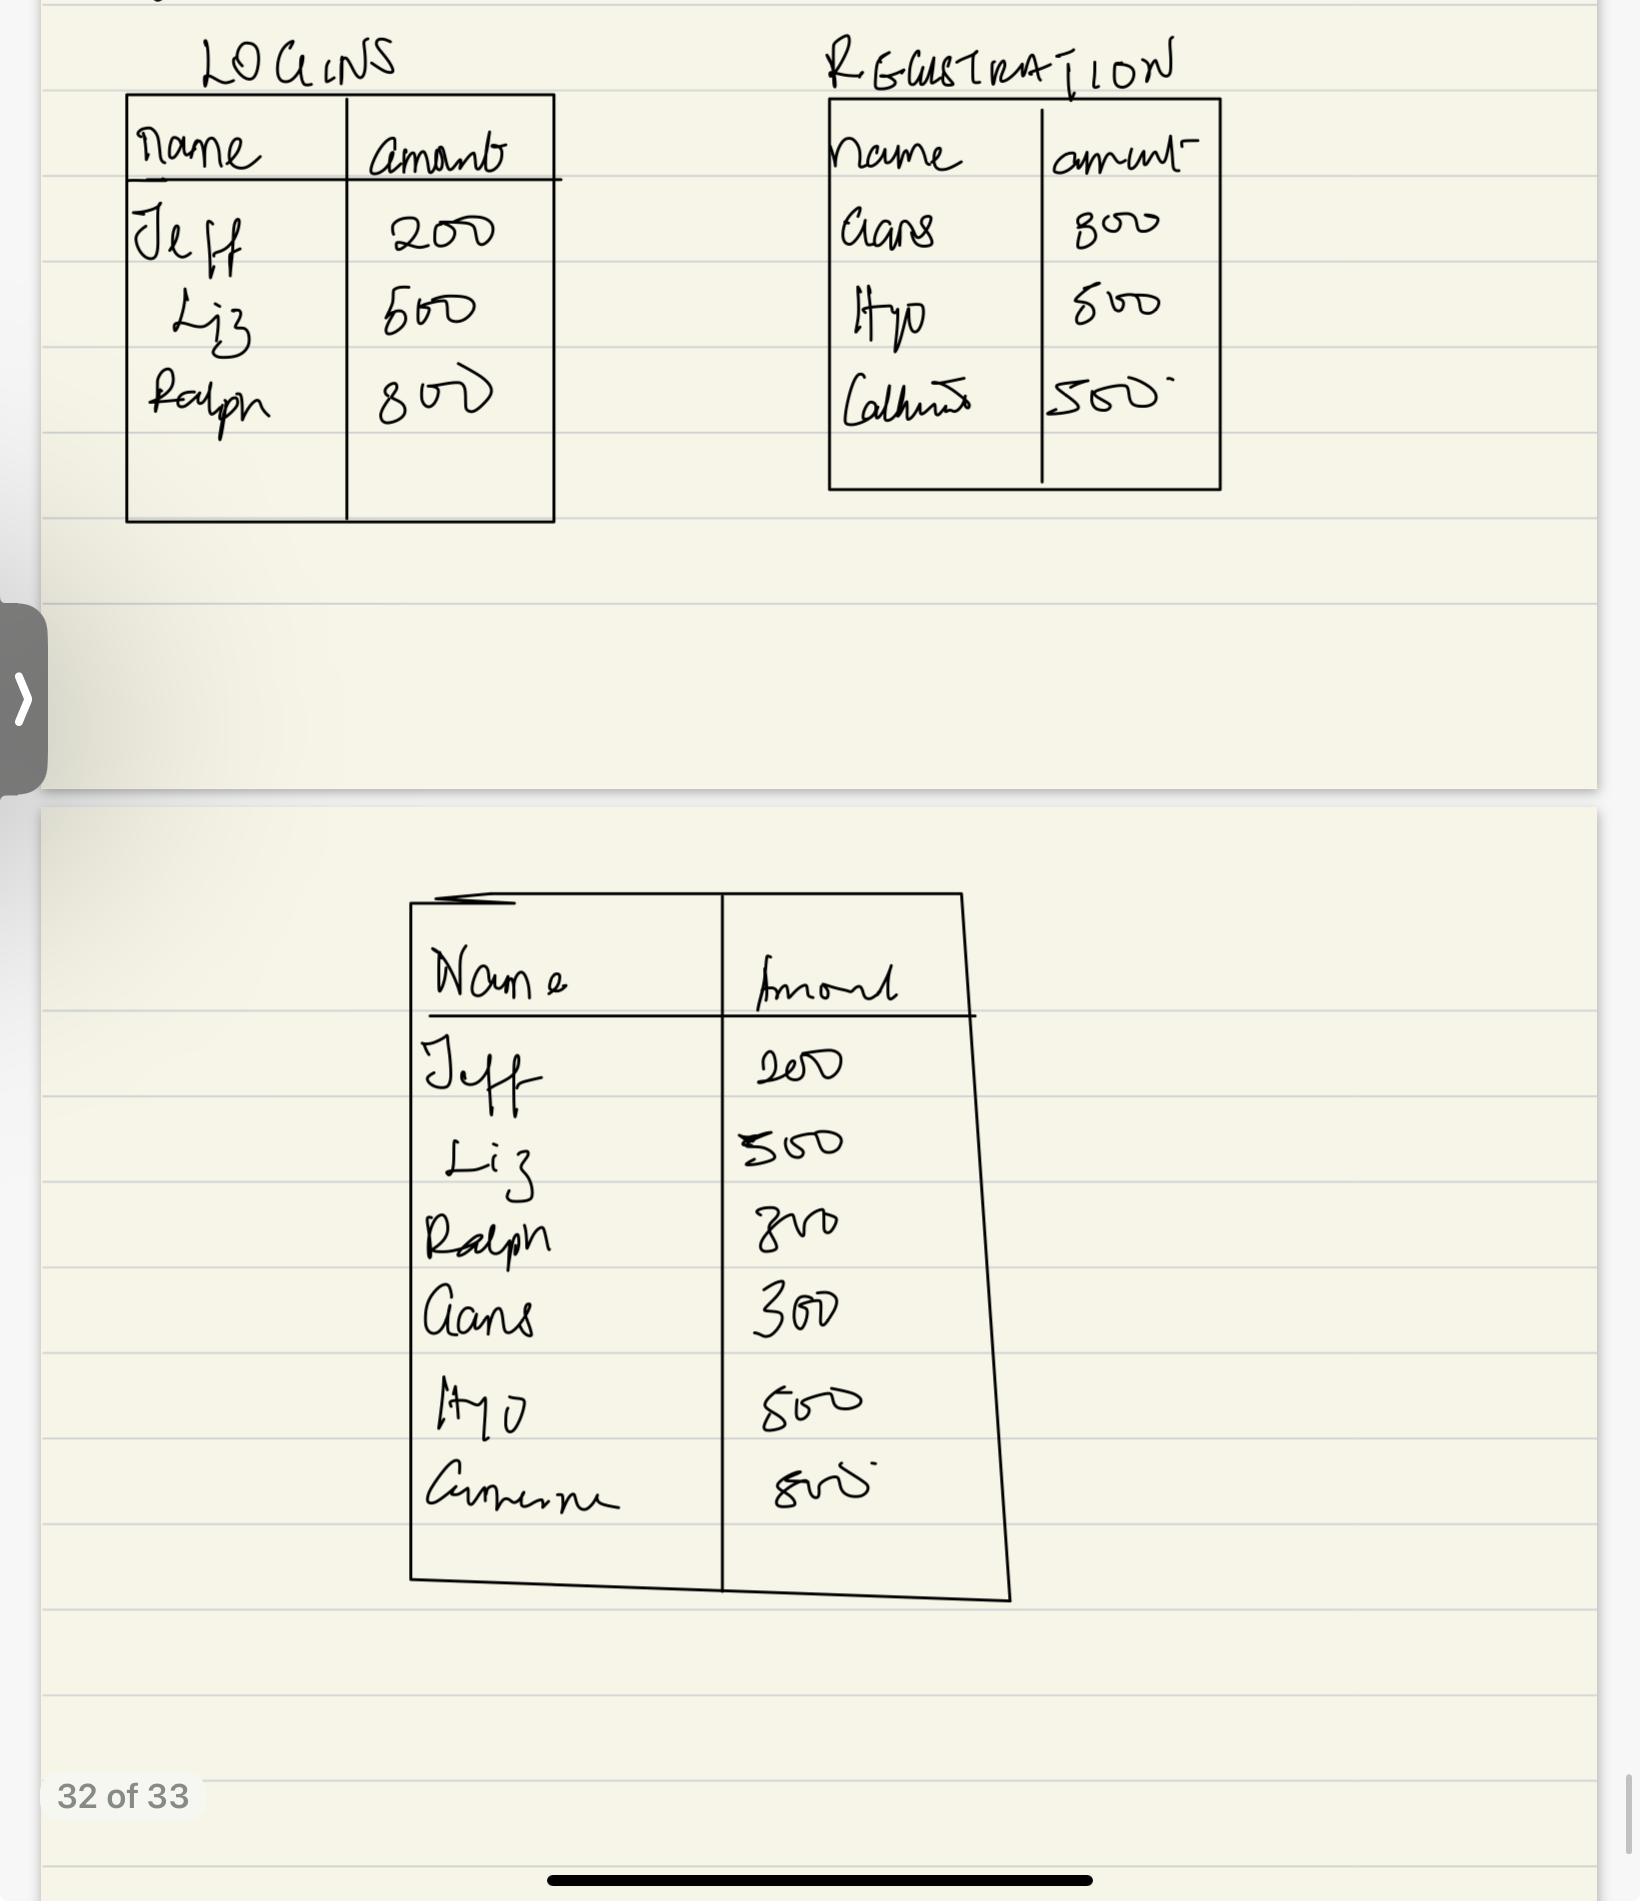 LOGINS
REGISTRATION
name amount
Jeff 200
Liz 500
Ralph 800
name amount
Gans 800
Hyo 500
500
Name Amount
Jeff 200
Liz 500
Ralph 800
Gans 300
Hyo 500
32 of 33